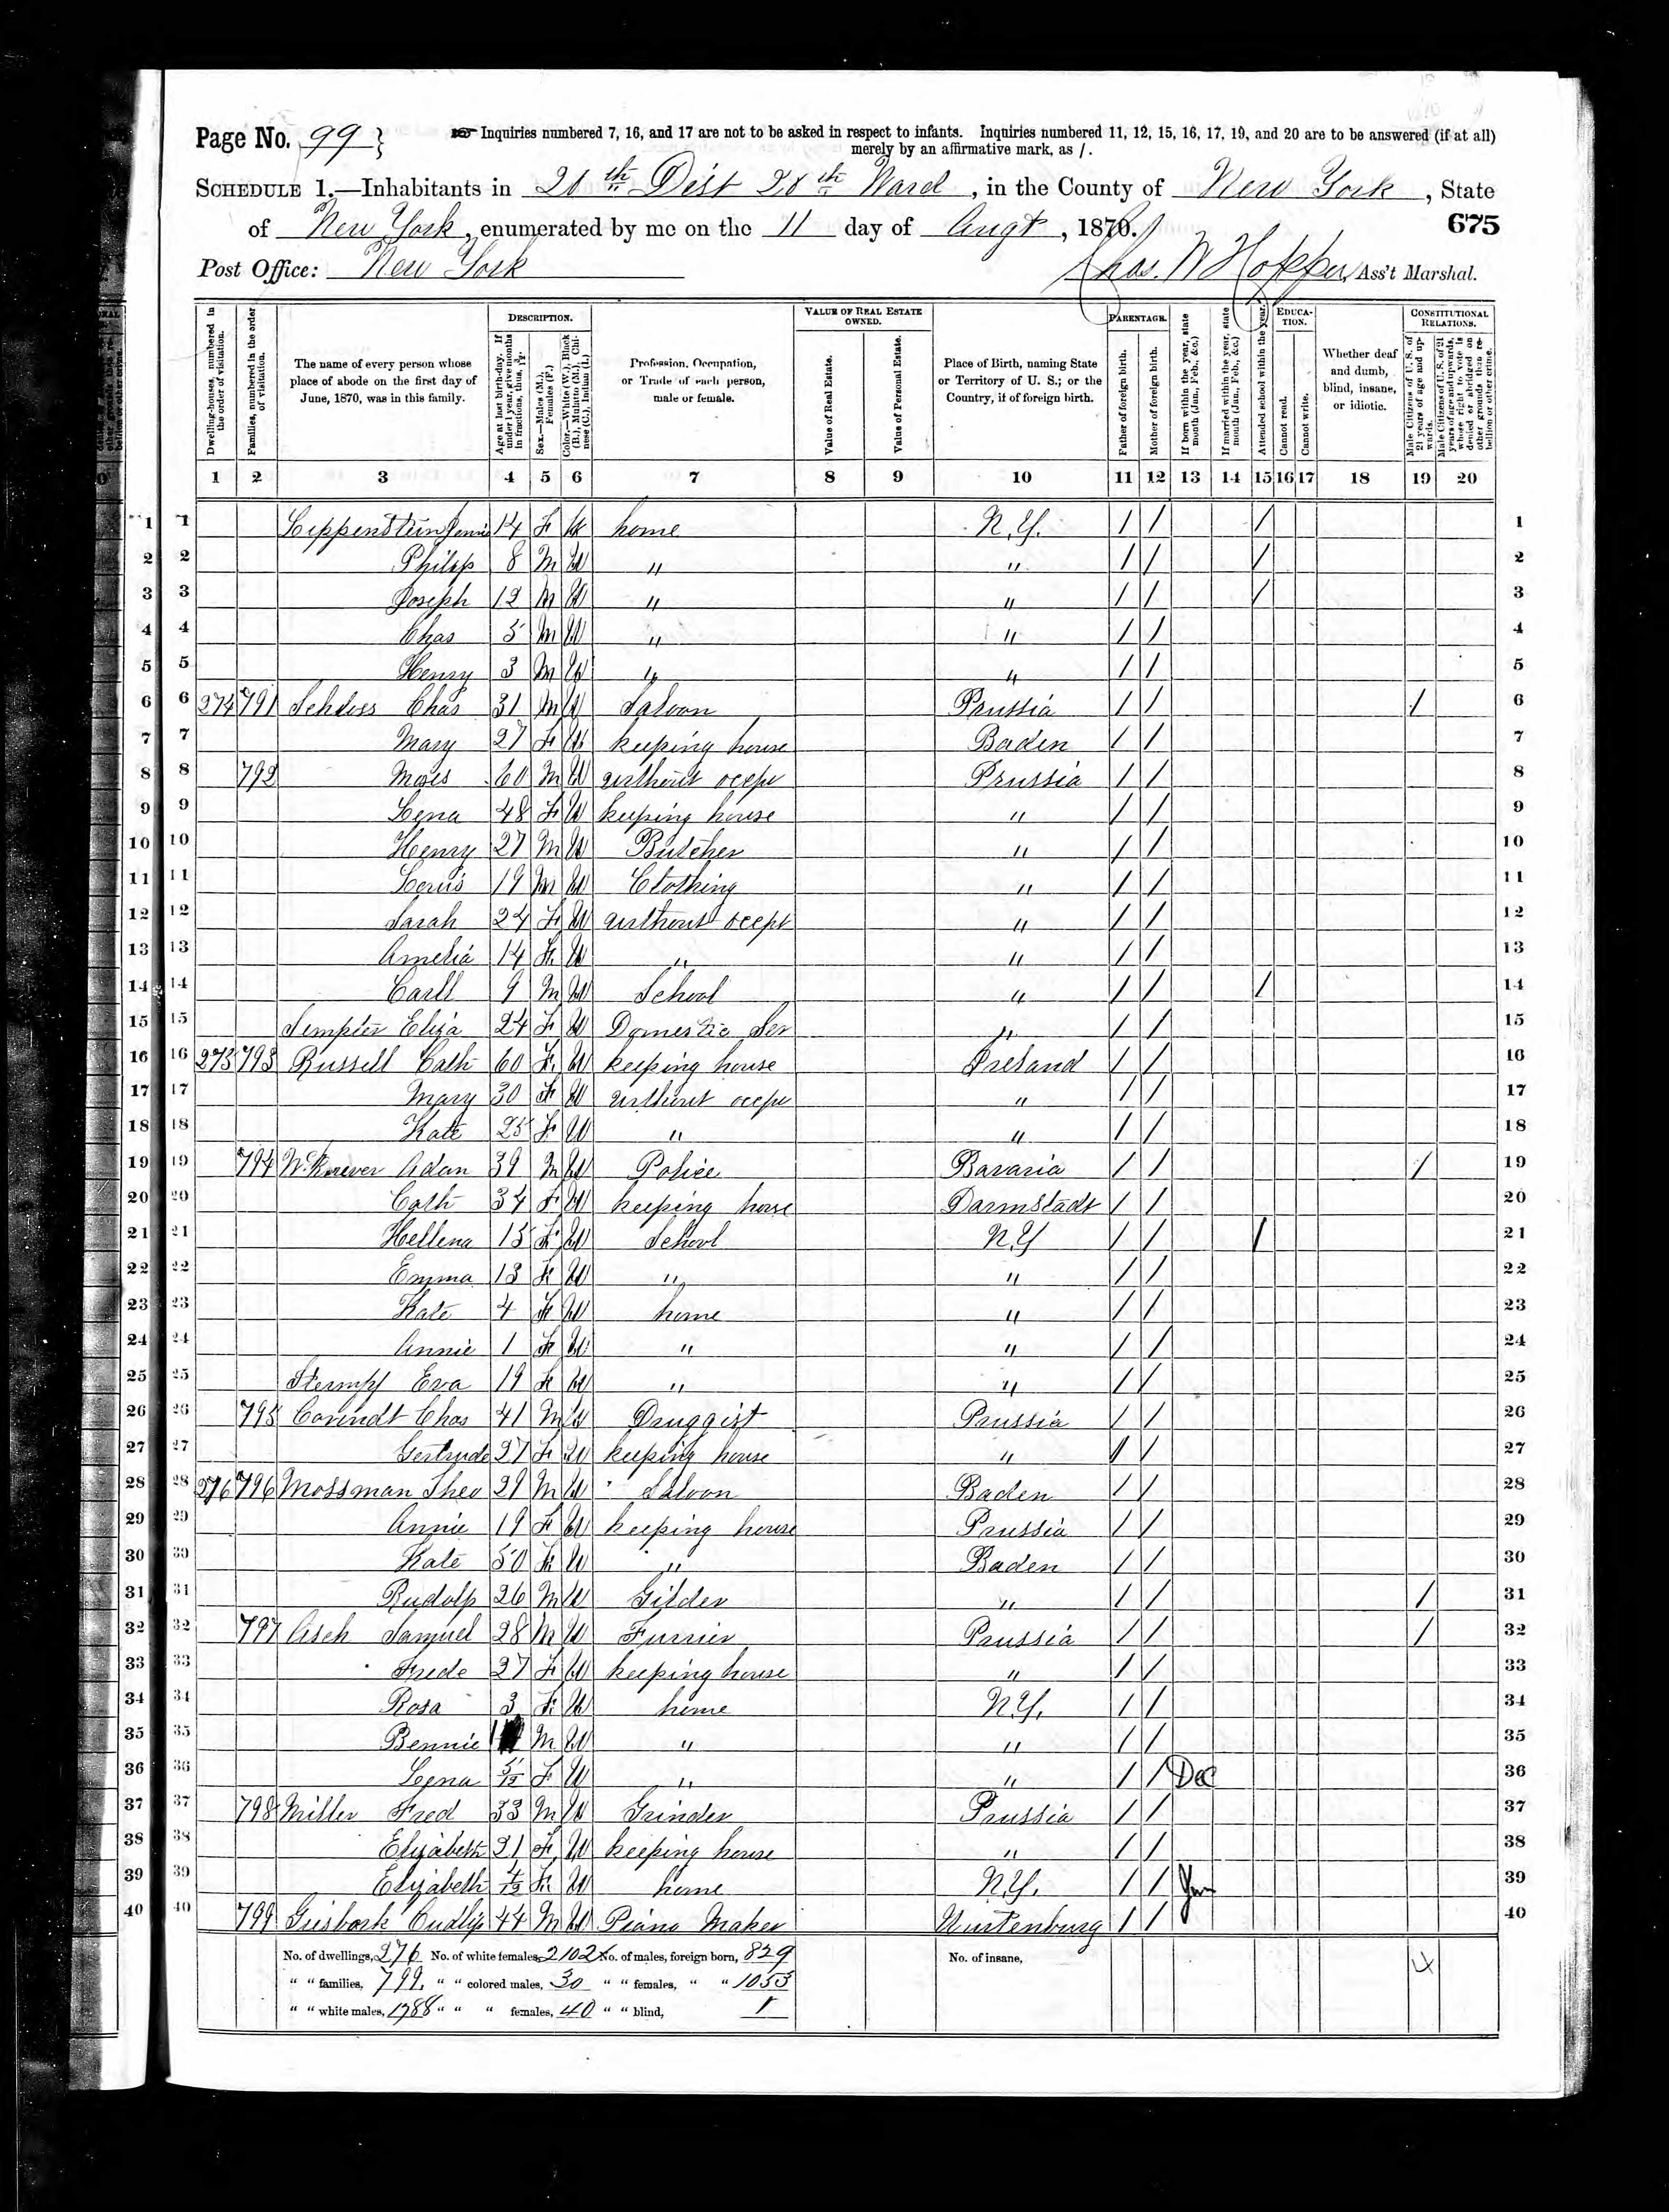 Page No. 99 } Inquiries numbered 7, 16, and 17 are not to be asked in respect to infants. Inquiries numbered 11, 12, 15, 16, 17, 19, and 20 are to be answered (if at all)
merely by an affirmative mark, as /.
SCHEDULE 1.—Inhabitants in 20th Dist 20th Ward, in the County of New York, State
of New York, enumerated by me on the 11 day of Augt, 1870. 675
Post Office: New York Chas. W Hopper, Ass't Marshal.
Dwelling-houses, numbered in the order of visitation.
Families, numbered in the order of visitation.
The name of every person whose place of abode on the first day of June, 1870, was in this family.
DESCRIPTION.
Age at last birth-day. If under 1 year, give months in fractions, thus, 3/12.
Sex.—Males (M.), Females (F.)
Color.—White (W.), Black (B.), Mulatto (M.), Chinese (C.), Indian (I.)
Profession, Occupation, or Trade of each person, male or female.
VALUE OF REAL ESTATE OWNED.
Value of Real Estate.
Value of Personal Estate.
Place of Birth, naming State or Territory of U. S.; or the Country, if of foreign birth.
PARENTAGE.
Father of foreign birth.
Mother of foreign birth.
If born within the year, state month (Jan., Feb., &c.)
If married within the year, state month (Jan., Feb., &c.)
Attended school within the year.
EDUCATION.
Cannot read.
Cannot write.
Whether deaf and dumb, blind, insane, or idiotic.
CONSTITUTIONAL RELATIONS.
Male Citizens of U. S. of 21 years of age and upwards.
Male Citizens of U. S. of 21 years of age and upwards, whose right to vote is denied or abridged on other grounds than rebellion or other crime.
1 2 3 4 5 6 7 8 9 10 11 12 13 14 15 16 17 18 19 20
1 Lippenstein Jennie 14 F W home N.Y. / / / 1
2 Philip 8 M W " " / / / 2
3 Joseph 12 M W " " / / / 3
4 Chas 5 M W " " / / 4
5 Henry 3 M W " " / / 5
6 274 791 Schloss Chas 31 M W Saloon Prussia / / / 6
7 Mary 27 F W keeping house Baden / / 7
8 792 Moses 60 M W without occpu Prussia / / 8
9 Lena 48 F W keeping house " / / 9
10 Henry 27 M W Butcher " / / 10
11 Louis 19 M W Clothing " / / 11
12 Sarah 24 F W without occpt " / / 12
13 Amelia 14 F W " " / / 13
14 Carll 9 M W School " / / / 14
15 Eliza 24 F W Domestic Ser " / / 15
16 275 793 Russell Cath 60 F W keeping house Ireland / / 16
17 Mary 30 F W without occpu " / / 17
18 Kate 25 F W " " / / 18
19 794 Adan 39 M W Police Bavaria / / / 19
20 Cath 34 F W keeping house Darmstadt / / 20
21 Hellena 15 F W School N.Y / / / 21
22 Emma 13 F W " " / / 22
23 Kate 4 F W home " / / 23
24 Annie 1 F W " " / / 24
25 Stempf Eva 19 F W " " / / 25
26 795 Chas 41 M W Druggist Prussia / / 26
27 Gertrude 27 F W keeping house " / / 27
28 276 796 Mossman Theo 29 M W Saloon Baden / / 28
29 Annie 19 F W keeping house Prussia / / 29
30 Kate 50 F W " Baden / / 30
31 Rudolp 26 M W Gilder " / / / 31
32 797 Asch Samuel 28 M W Furrier Prussia / / / 32
33 Frede 27 F W keeping house " / / 33
34 Rosa 3 F W home N.Y. / / 34
35 Bennie M W " " / / 35
36 Lena F W " " / / Dec 36
37 798 Miller Fred 33 M W Grinder Prussia / / 37
38 Elizabeth 21 F W keeping house " / / 38
39 Elizabeth F W home N.Y. / / 39
40 799 44 M W Piano Maker Wurtenburg / / 40
No. of dwellings, 276 No. of white females, 2102 No. of males, foreign born, 829 No. of insane,
" " families, 799. " " colored males, 30 " " females, " " 1053
" " white males, 1788 " " " females, 40 " " blind, 1